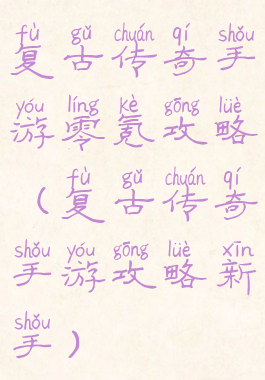 fù gǔ chuán qí shǒu
复古传奇手
yóu líng kè gōng lüè
游零氪攻略
fù gǔ chuán qí
（复古传奇
shǒu yóu gōng lüè xīn
手游攻略新
shǒu
手）